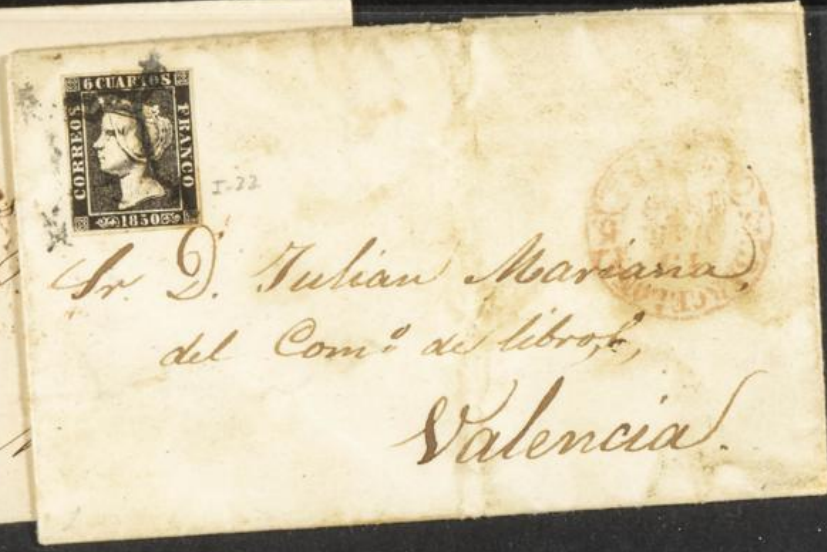 6 CUARTOS
CORREOS
FRANCO
1850
I-22
Sr. D. Julian Mariana,
del Comº de libros,
Valencia.